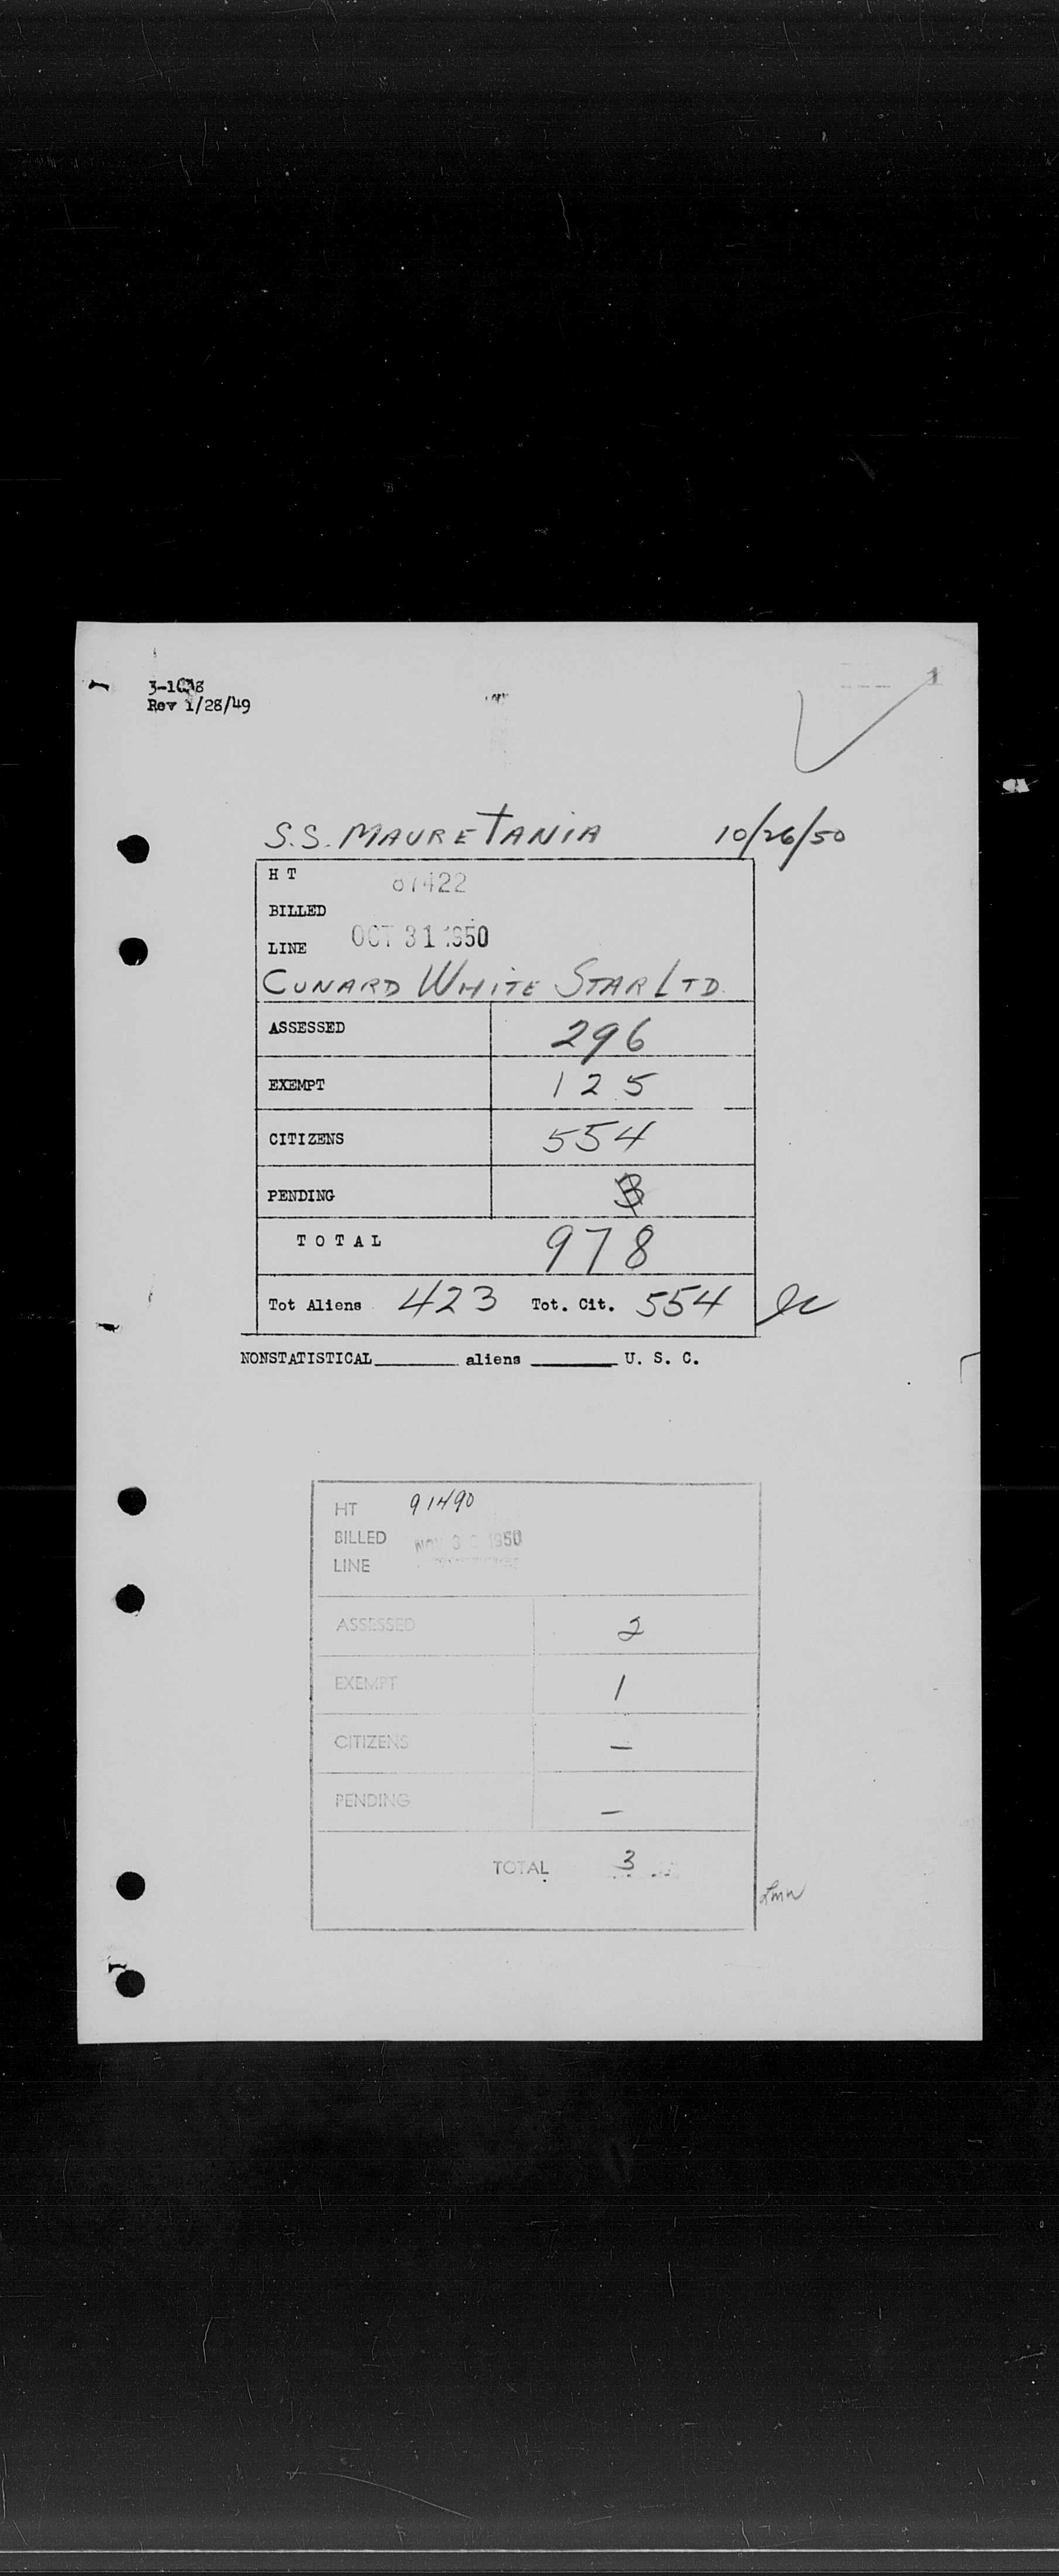 1
Rev 1/28/49
S.S. MAURETANIA 10/26/50
H T 87422
BILLED
LINE OCT 31 1950
CUNARD WHITE STAR LTD.
ASSESSED 296
EXEMPT 125
CITIZENS 554
PENDING 3
TOTAL 978
Tot Aliens 423 Tot. Cit. 554
NONSTATISTICAL aliens U. S. C.
HT 91490
BILLED NOV 1950
LINE
ASSESSED 2
EXEMPT 1
CITIZENS —
PENDING —
TOTAL 3